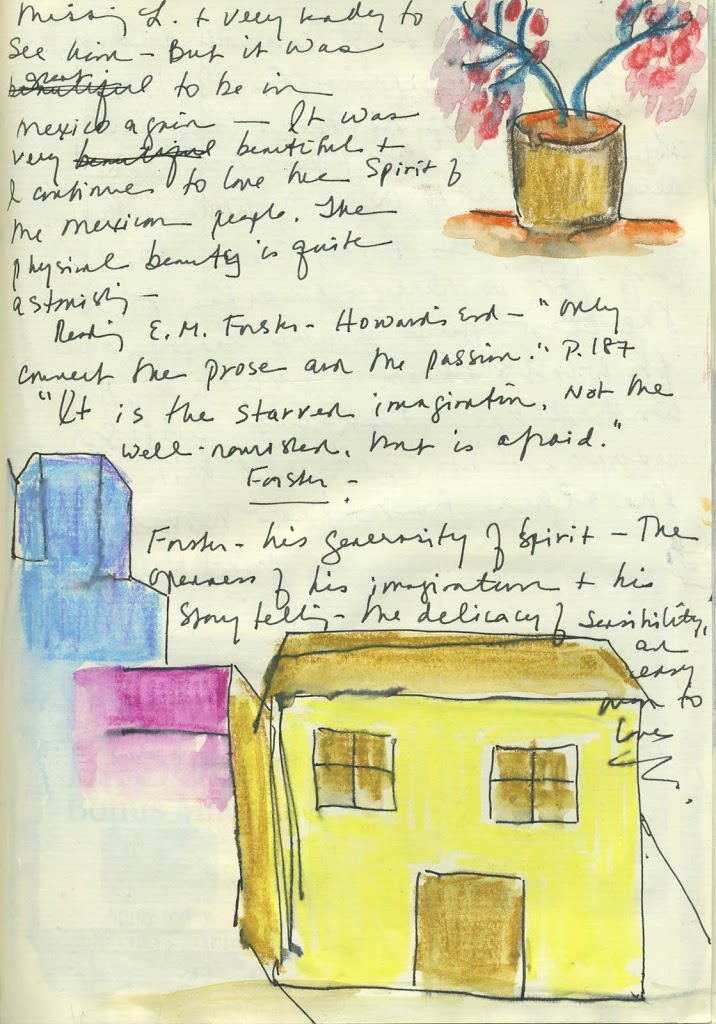 missing L. + very ready to
see him – But it was
great to be in
Mexico again – It was
very beautiful +
I continue to love the Spirit of
the Mexican people. The
physical beauty is quite
astonishing –
Reading E. M. Forster – Howards End – "only
connect the prose and the passion." P. 187
"It is the starved imagination, not the
well-nourished, that is afraid."
Forster –
Forster – his generosity of Spirit – The
openness of his imagination + his
Story telling – the delicacy of sensibility,
an
easy
man to
love